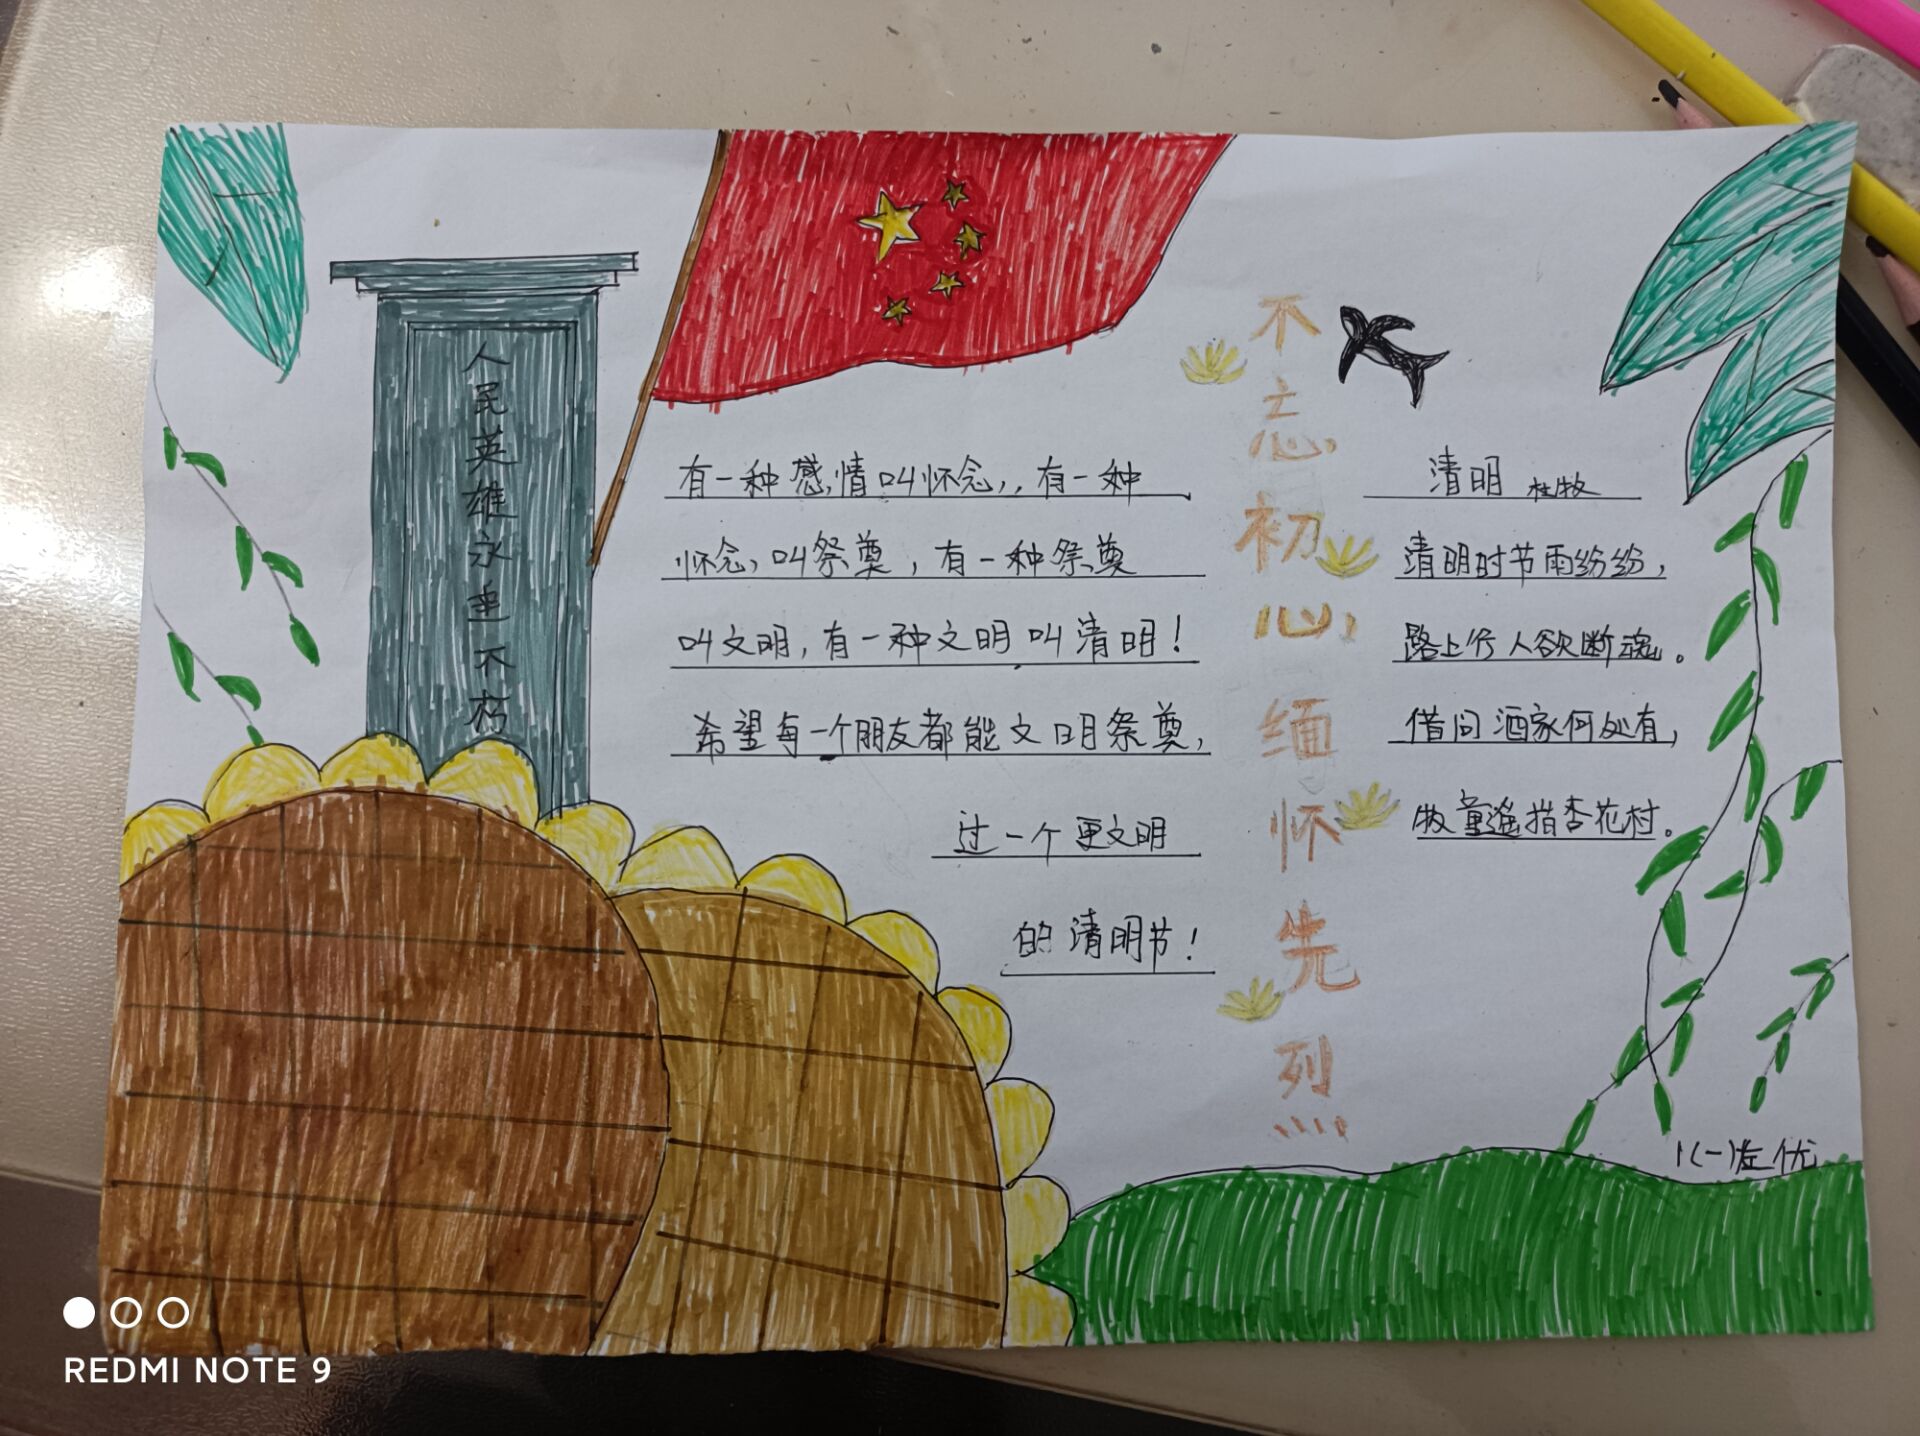 人民英雄永垂不朽
有一种感情叫怀念,,有一种
怀念,叫祭奠,有一种祭奠
叫文明,有一种文明叫清明!
希望每一个朋友都能文明祭奠,
过一个更文明
的清明节!
不忘初心缅怀先烈
清明 杜牧
清明时节雨纷纷,
路上行人欲断魂。
借问酒家何处有,
牧童遥指杏花村。
REDMI NOTE 9